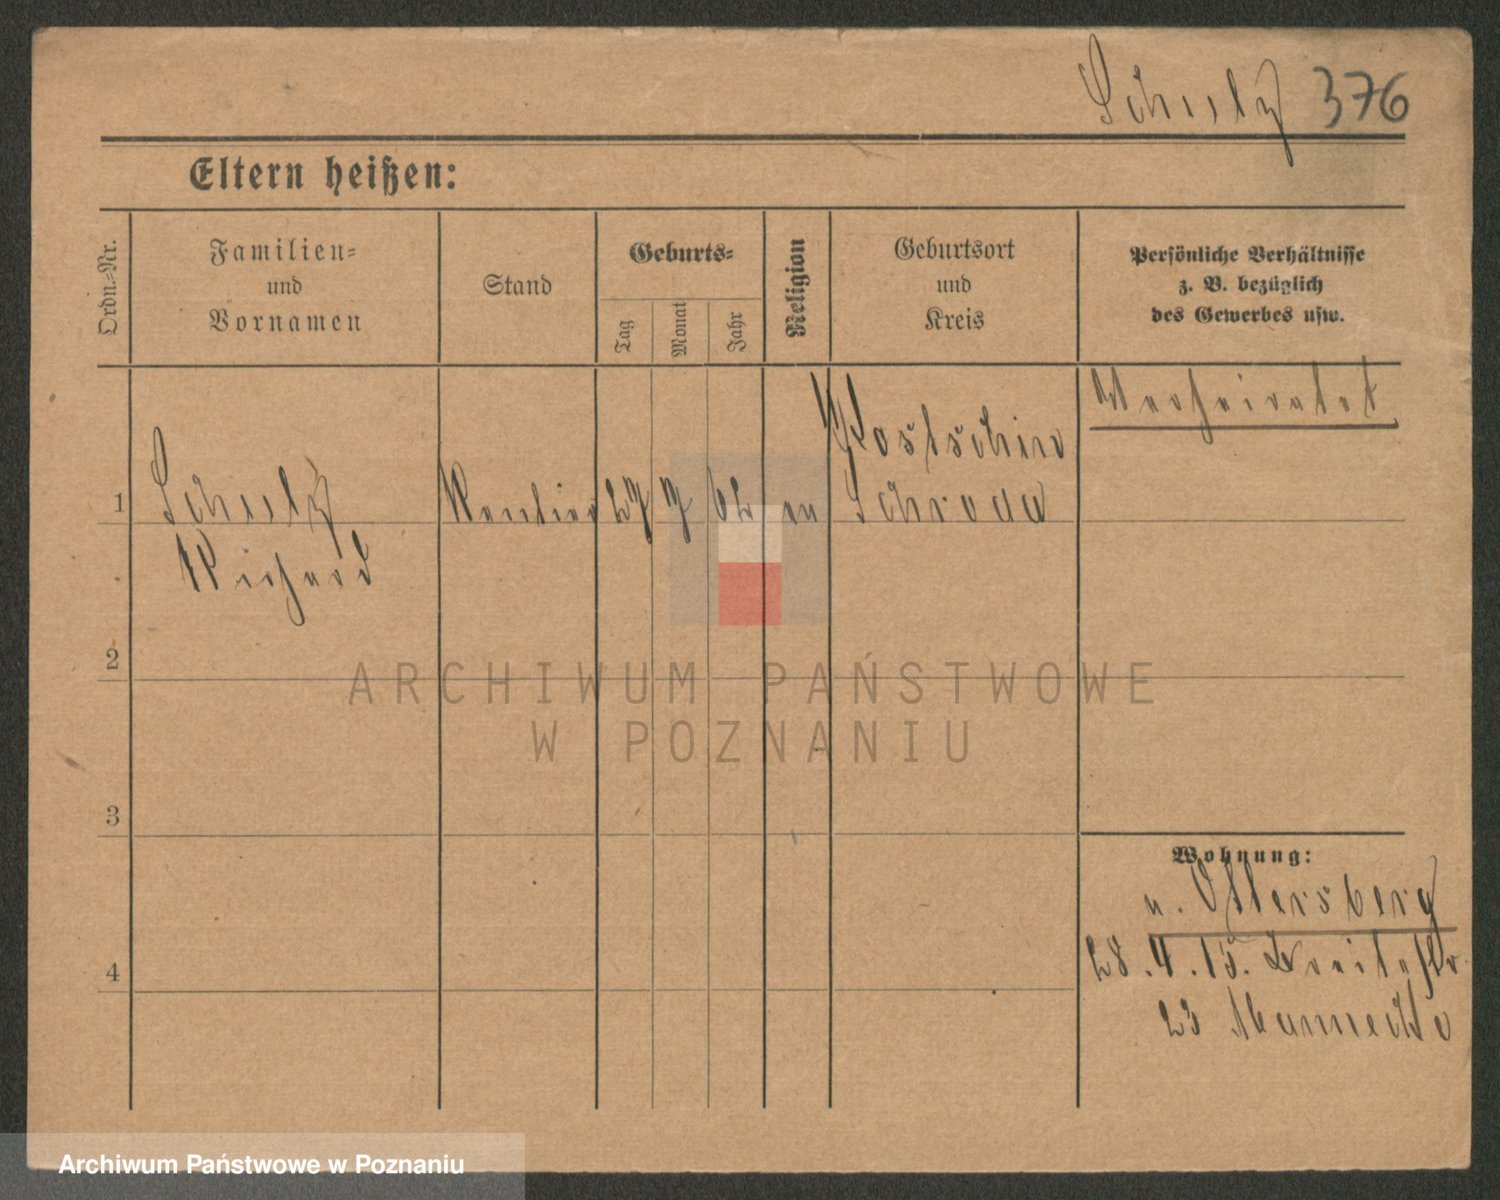 Schulz 376
Eltern heißen:
Ordn.-Nr.
Familien-
und
Vornamen
Stand
Geburts-
Tag
Monat
Jahr
Religion
Geburtsort
und
Kreis
Persönliche Verhältnisse
z. B. bezüglich
des Gewerbes usw.
Verheiratet
Kostschin
1 Schulz Rentier 27 7 62 ev Schroda
Richard
2
ARCHIWUM PAŃSTWOWE
W POZNANIU
3
4
Wohnung:
n. Ottersberg
28.4.15. Breitestr
23
Archiwum Państwowe w Poznaniu